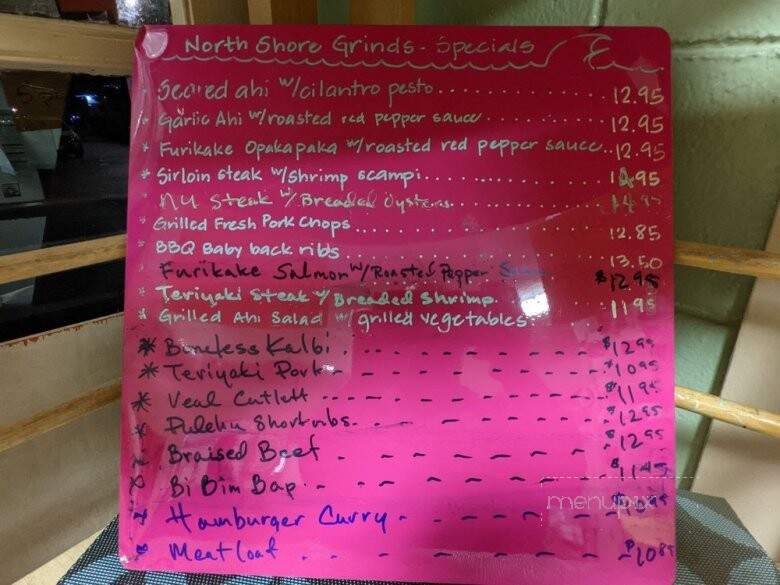 North Shore Grinds - Specials
* Seared ahi w/cilantro pesto 12.95
* Garlic Ahi w/roasted red pepper sauce 12.95
* Furikake Opakapaka w/roasted red pepper sauce 12.95
* Sirloin steak w/shrimp scampi 14.95
NY Steak w/ Breaded Oysters 14.95
* Grilled Fresh Pork Chops 12.85
* BBQ Baby back ribs 13.50
Furikake Salmon w/Roasted Pepper Sauce $12.95
* Teriyaki Steak w/ Breaded Shrimp 11.95
* Grilled Ahi Salad w/ grilled vegetables
* Boneless Kalbi $12.95
* Teriyaki Pork $10.95
* Veal Cutlett $11.95
* Pulehu Shortribs $12.95
Braised Beef $12.95
Bi Bim Bap $11.45
Hamburger Curry
Meatloaf $10.85
menupix